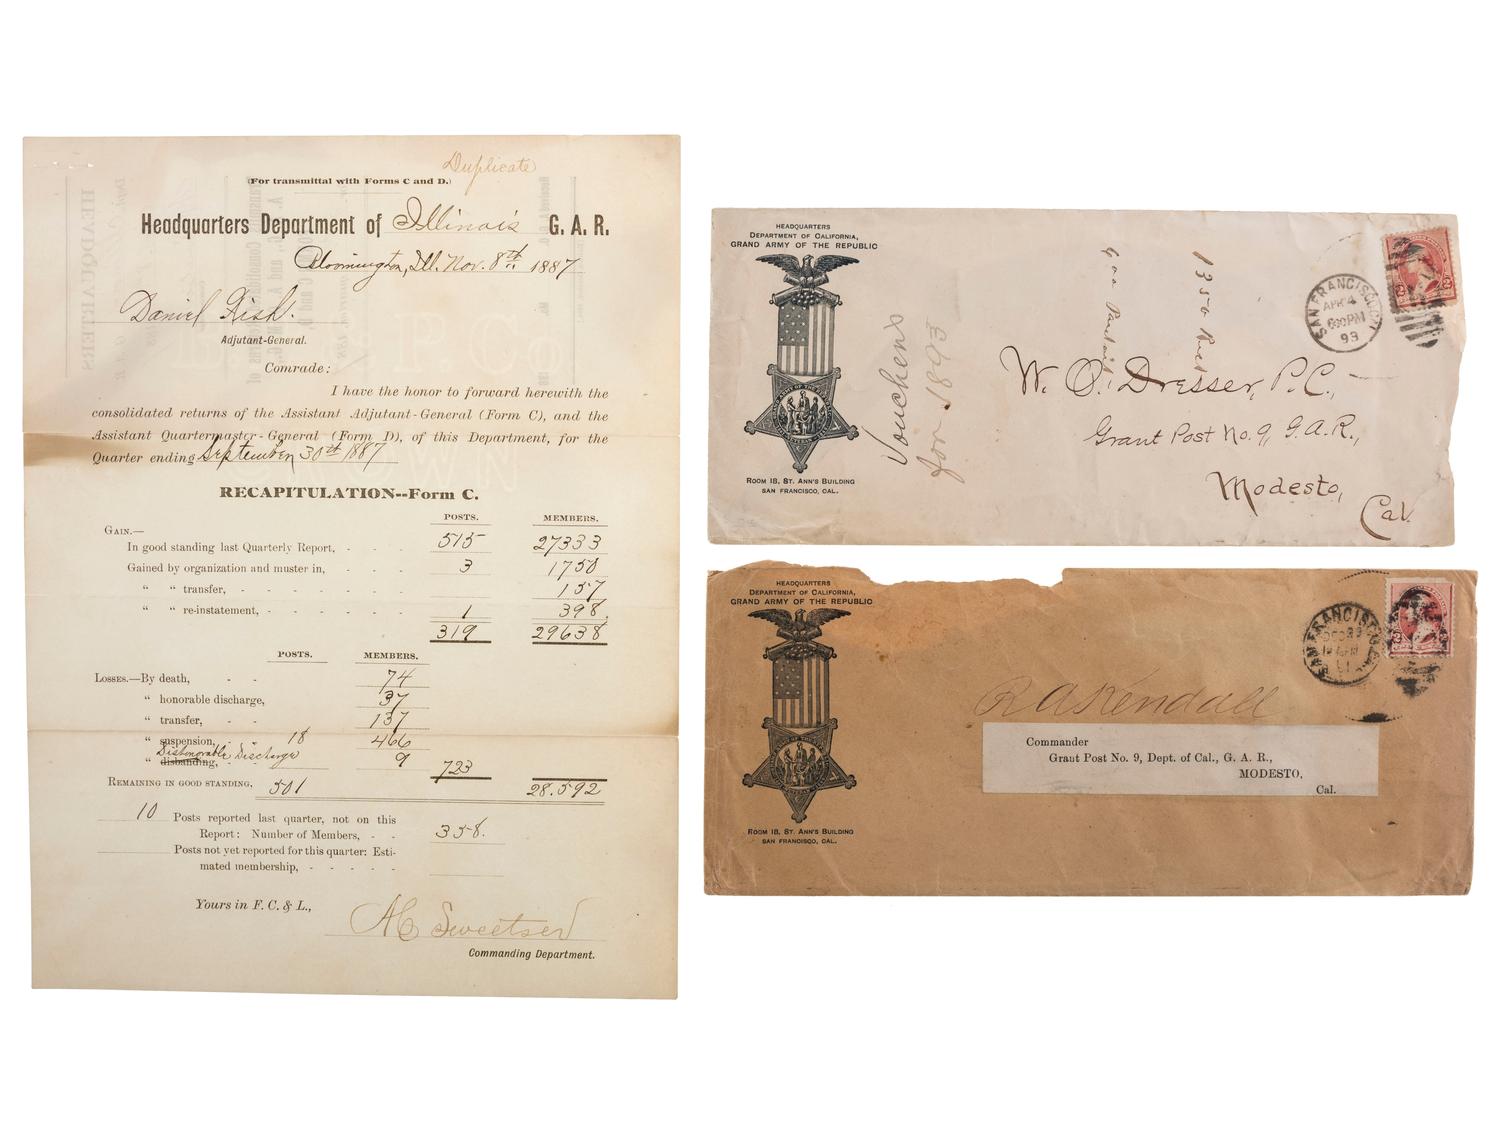 Duplicate
(For transmittal with Forms C and D.)
Headquarters Department of Illinois G. A. R.
Bloomington, Ill. Nov. 8th 1887
Daniel Fish.
Adjutant-General.
Comrade:
I have the honor to forward herewith the
consolidated returns of the Assistant Adjutant-General (Form C), and the
Assistant Quartermaster-General (Form D), of this Department, for the
Quarter ending September 30th 1887
RECAPITULATION--Form C.
POSTS. MEMBERS.
GAIN.—
In good standing last Quarterly Report, - - - 515 27333
Gained by organization and muster in, - - - 3 1750
“ “ transfer, - - - - - - - 157
“ “ re-instatement, - - - - - - 1 398
319 29638
POSTS. MEMBERS.
LOSSES.—By death, - - 74
“ honorable discharge, 37
“ transfer, - - 137
“ suspension, - - 18 466
Dishonorable Discharge
“ disbanding, 9 723
REMAINING IN GOOD STANDING, 501 28.592
10 Posts reported last quarter, not on this
Report: Number of Members, - - 358.
Posts not yet reported for this quarter: Esti-
mated membership, - - - - -
Yours in F. C. & L.,
A C Sweetser
Commanding Department.
HEADQUARTERS
DEPARTMENT OF CALIFORNIA,
GRAND ARMY OF THE REPUBLIC
ROOM 18, ST. ANN'S BUILDING
SAN FRANCISCO, CAL.
Vouchers
for 1893
1350
SAN FRANCISCO, CAL
APR 4
630PM
93
W. O. Dresser, P.C.,
Grant Post No. 9, G.A.R.,
Modesto,
Cal.
HEADQUARTERS
DEPARTMENT OF CALIFORNIA,
GRAND ARMY OF THE REPUBLIC
ROOM 18, ST. ANN'S BUILDING
SAN FRANCISCO, CAL.
SAN FRANCISCO, CAL
R A Kendall
Commander
Grant Post No. 9, Dept. of Cal., G. A. R.,
MODESTO,
Cal.